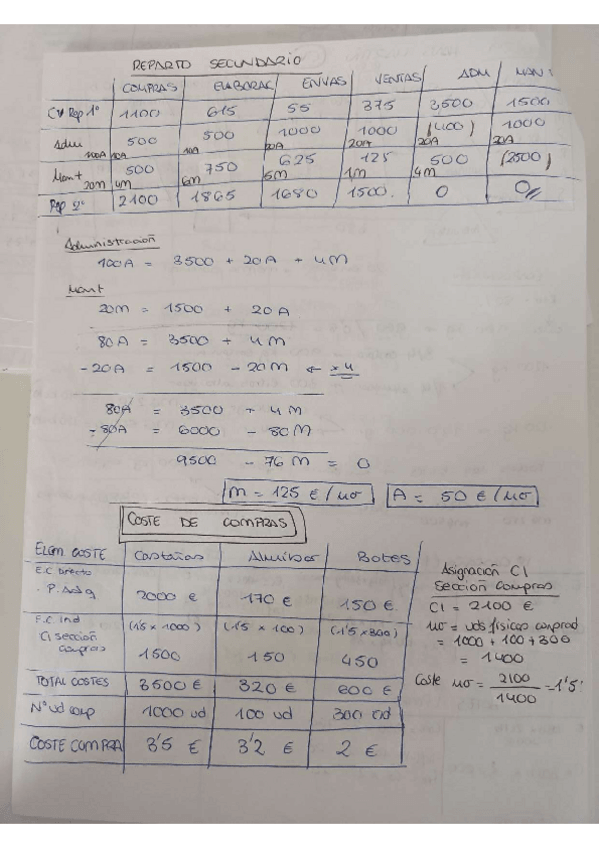 REPARTO SECUNDARIO
COMPRAS ELABORAC ENVAS VENTAS ADM MANT
CI/Rep 1º 1100 615 55 375 3500 1500
Adm 500 500 1000 1000 (400) 1000
100A 10A 10A 20A 20A 20A 20A
Mant 500 750 625 125 500 (2500)
20m 4m 6m 5m 1m 4m
Rep 2º 2100 1865 1680 1500. 0 0
Administración
100A = 3500 + 20A + 4M
Mant
20M = 1500 + 20A
80A = 3500 + 4M
- 20A = 1500 - 20M ← x 4
80A = 3500 + 4M
- 80A = 6000 - 80M
9500 - 76M = 0
M = 125 €/uo A = 50 €/uo
COSTE DE COMPRAS
ELEM COSTE Castañas Almibar Botes
E.C Directo
. P. Adq 2000 € 170 € 150 €
E.C Ind (1'5 x 1000) (1'5 x 100) (1'5 x 300)
CI sección
compras 1500 150 450
TOTAL COSTES 3500 € 320 € 600 €
Nº Ud comp 1000 ud 100 ud 300 ud
COSTE COMPRA 3'5 € 3'2 € 2 €
Asignación CI
Sección compras
CI = 2100 €
uo = uds físicas comprad
= 1000 + 100 + 300
= 1400
Coste uo = 2100 = 1'5
1400